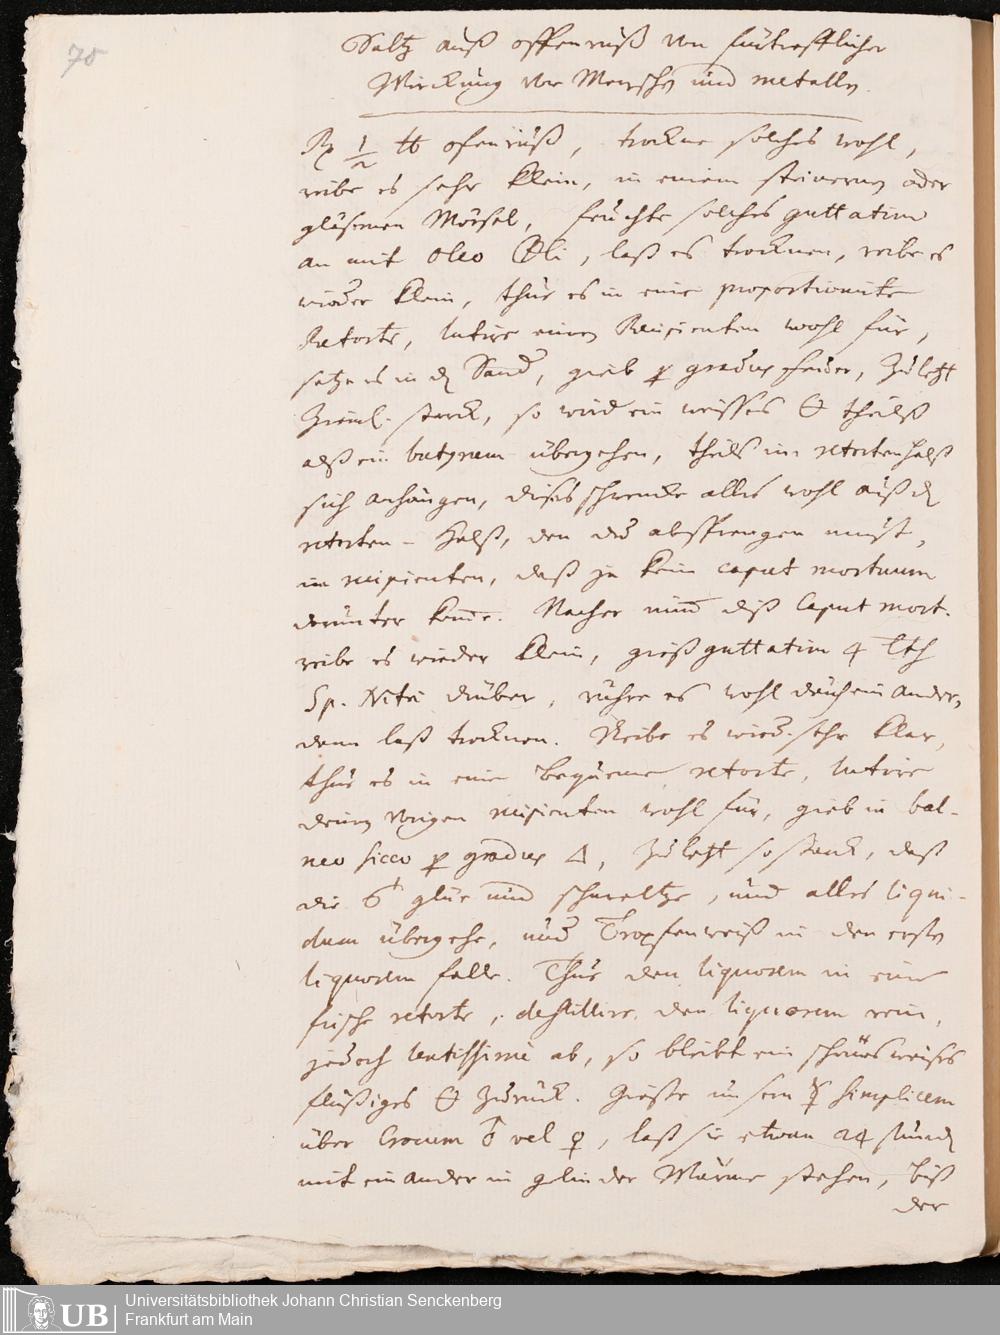 70
Saltz auß offenruß von fürtrefflicher
Wirckung vor Menschen und metallen.
℞ 1/2 ℔ ofenruß, trockne solches wohl,
reibe es sehr klein, in einem steinernen oder
gläsernen Mörsel, feüchte solches guttatim
an mit Oleo ⊕li, laß es trocknen, reibe es
wieder klein, thue es in eine proportionirte
Retorte, lutire einen Recipienten wohl für,
setze es in den Sand, gieb per gradus feüer, zuletzt
ziml. starck, so wird ein weisses theilß
alß ein butyrum übergehen, theilß im retortenhalß
sich anhängen, dieses schwencke alles wohl auß dem
retorten-halß, den du absprengen must,
im recipienten, daß ja kein caput mortuum
darunter kome. Nacher nim diß Caput mort.
reibe es wieder klein, gieß guttatim 4 Lth
Sp. Nitri drüber, rühre es wohl durch ein ander,
dann laß trocknen. Reibe es wied. sehr klar,
thue es in eine bequeme retorte, lutire
deinen vorigen recipienten wohl für, gieb in bal-
neo sicco per gradus △, zuletzt so starck, daß
die glüe und schmeltze, und alles liqui-
dum übergehe, und Tropfenweiß in den ersten
liquorem falle. Thue den liquorem in eine
frische retorte, destillire den liquorem rein,
jedoch lentissimè ab, so bleibt ein schönes weisses
flüßiges zurück. Giesse simplicem
über Crocum vel ♀, laß sie etwan 24 stunden
mit ein ander in gelinder Wärme stehen, biß
der
Universitätsbibliothek Johann Christian Senckenberg
Frankfurt am Main
UB